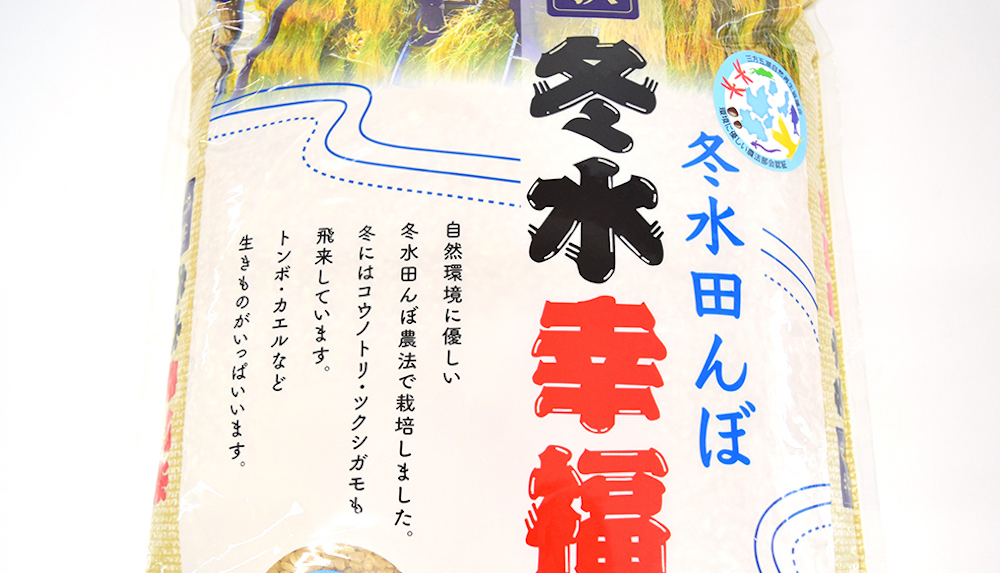 三方五湖自然再生協議会
環境に優しい農法部会
冬水田んぼ
冬水幸福
自然環境に優しい
冬水田んぼ農法で栽培しました。
冬にはコウノトリ・ツクシガモも
飛来しています。
トンボ・カエルなど
生きものがいっぱいいます。